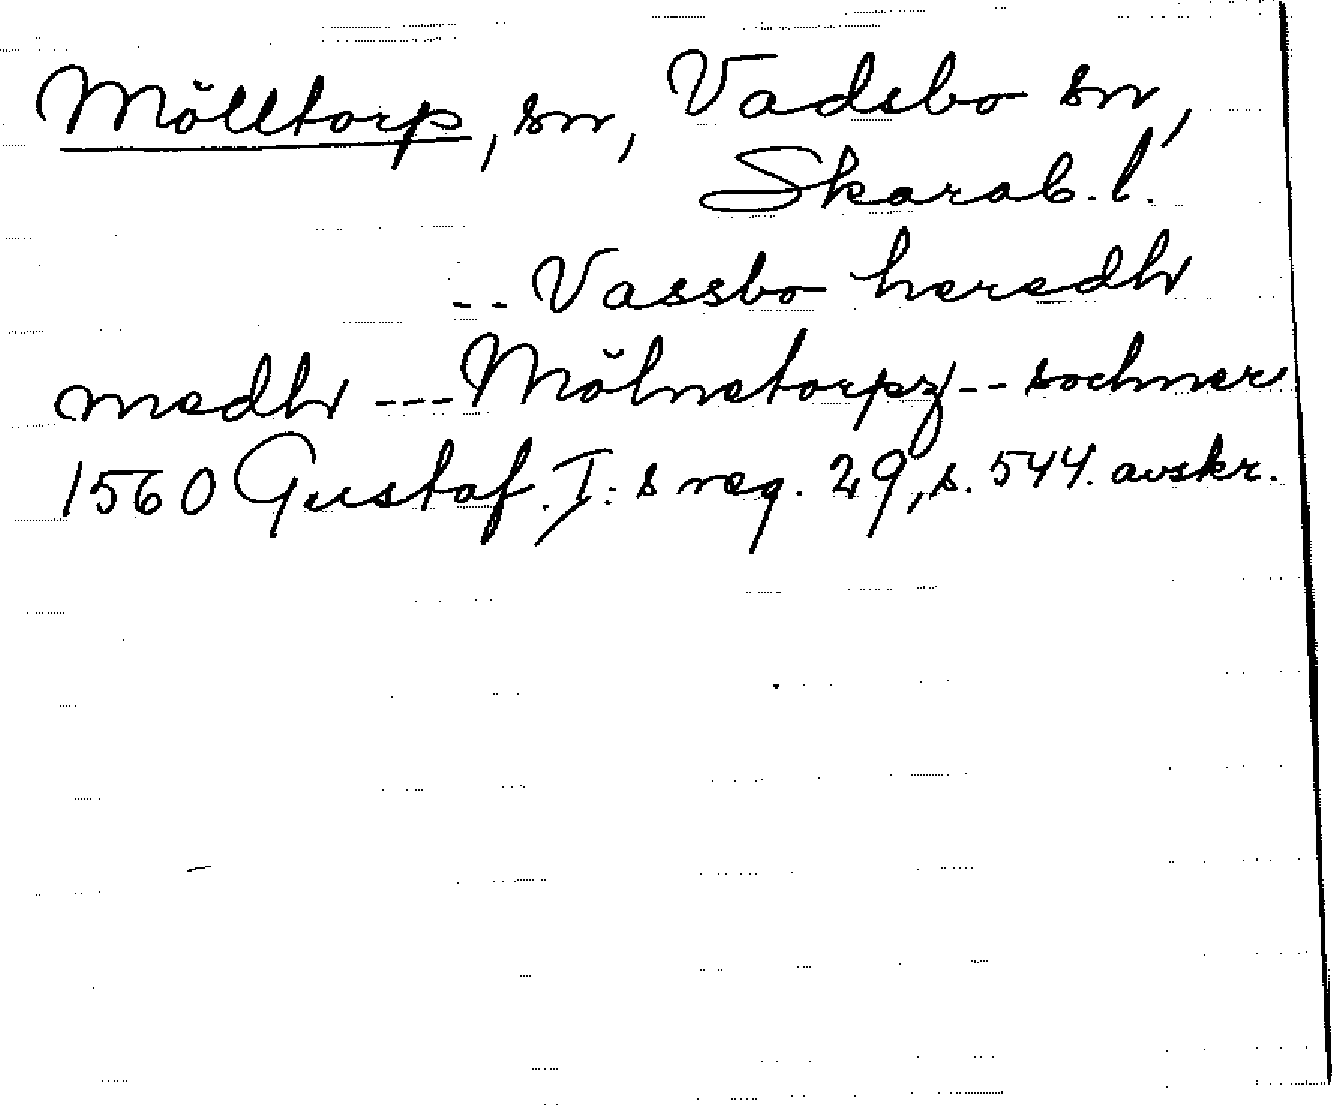 Mölltorp, sn, Vadsbo sn,
Skarab. l.
-- Vassbo heredh
medh --- Mölnetorpz -- sochner
1560 Gustaf. I: s reg. 29, s. 544. avskr.